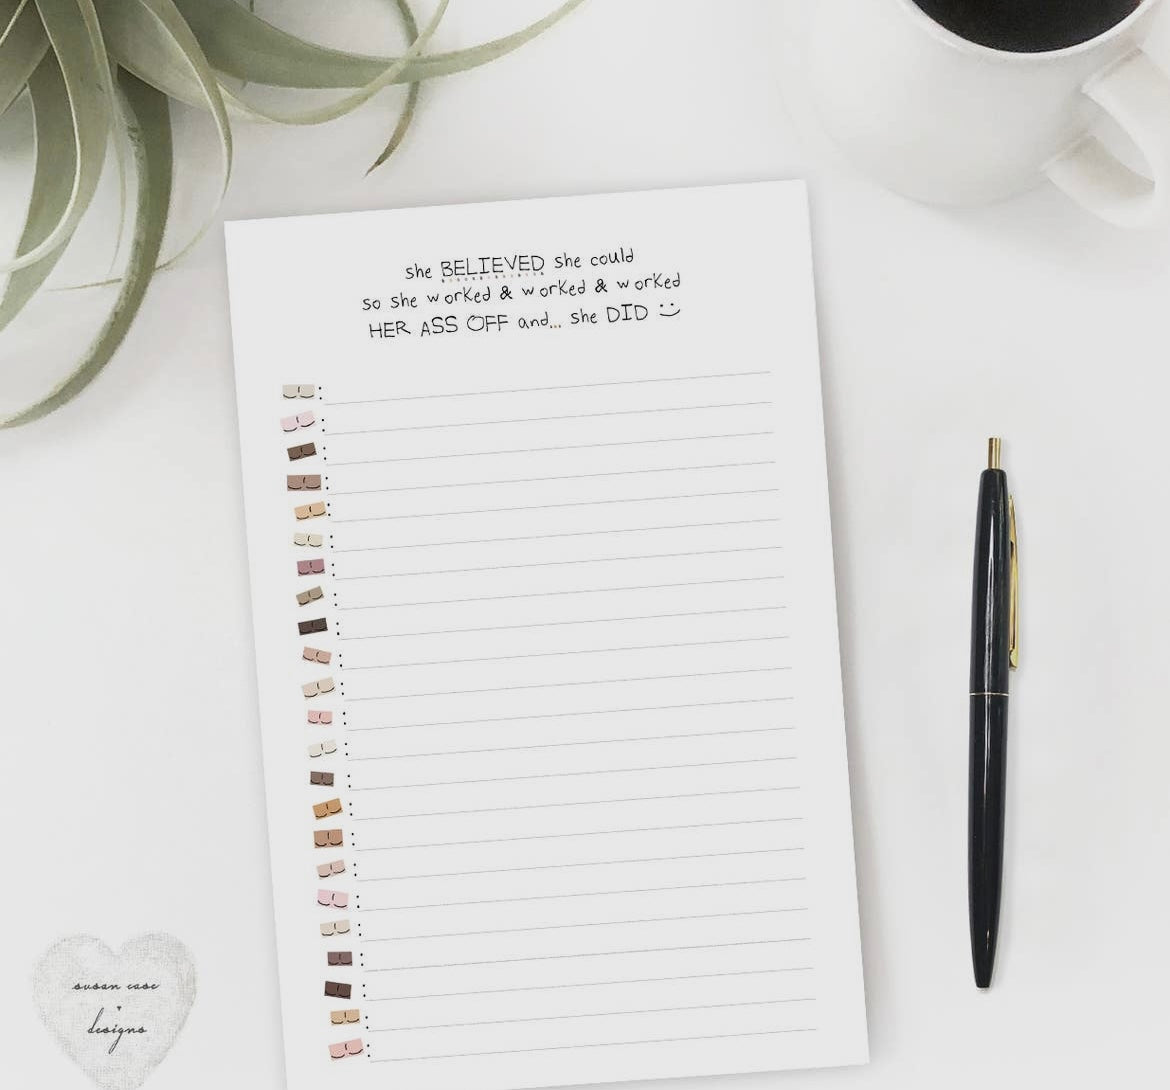 she BELIEVED she could
so she worked & worked & worked
HER ASS OFF and... she DID :)
:
:
:
:
:
:
:
:
:
:
:
:
:
:
:
:
:
:
:
:
:
:
:
susan case
designs